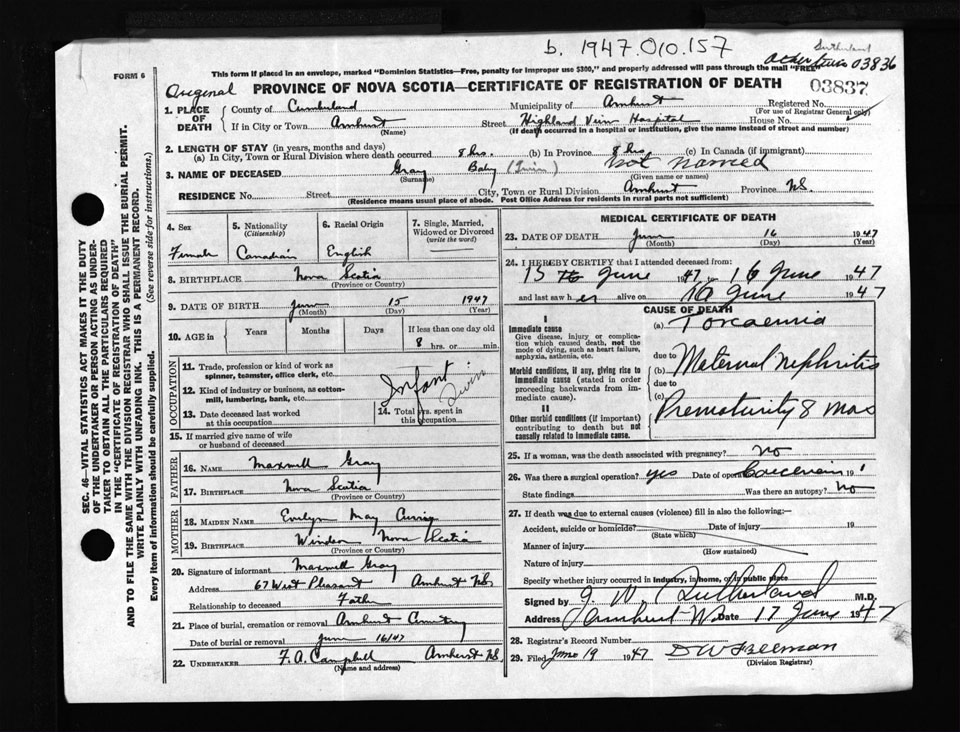 b. 1947.010.157
Sutherland
FORM 6
This form if placed in an envelope, marked "Dominion Statistics—Free, penalty for improper use $300," and properly addressed will pass through the mail "FREE" 03836
Original PROVINCE OF NOVA SCOTIA—CERTIFICATE OF REGISTRATION OF DEATH 03837
1. PLACE OF DEATH County of Cumberland Municipality of Amherst Registered No.
(For use of Registrar General only)
If in City or Town Amherst Street Highland View Hospital House No.
(Name) (If death occurred in a hospital or institution, give the name instead of street and number)
2. LENGTH OF STAY (in years, months and days)
(a) In City, Town or Rural Division where death occurred 8 hrs. (b) In Province 8 hrs (c) In Canada (if immigrant)
3. NAME OF DECEASED Gray Baby (Twin) not named
(Surname) (Given name or names)
RESIDENCE No. Street City, Town or Rural Division Amherst Province N.S.
(Residence means usual place of abode. Post Office Address for residents in rural parts not sufficient)
SEC. 46—VITAL STATISTICS ACT MAKES IT THE DUTY
OF THE UNDERTAKER OR PERSON ACTING AS UNDER-
TAKER TO OBTAIN ALL THE PARTICULARS REQUIRED
IN THE "CERTIFICATE OF REGISTRATION OF DEATH"
AND TO FILE THE SAME WITH THE DIVISION REGISTRAR WHO SHALL ISSUE THE BURIAL PERMIT.
WRITE PLAINLY WITH UNFADING INK. THIS IS A PERMANENT RECORD.
Every item of information should be carefully supplied. (See reverse side for instructions.)
4. Sex 5. Nationality 6. Racial Origin 7. Single, Married,
(Citizenship) Widowed or Divorced
(write the word)
Female Canadian English
8. BIRTHPLACE Nova Scotia
(Province or Country)
9. DATE OF BIRTH June 15 1947
(Month) (Day) (Year)
10. AGE in Years Months Days If less than one day old
8 hrs. or min.
OCCUPATION
11. Trade, profession or kind of work as
spinner, teamster, office clerk, etc.
12. Kind of industry or business, as cotton-
mill, lumbering, bank, etc.
Infant Twin
13. Date deceased last worked
at this occupation
14. Total yrs. spent in
this occupation
15. If married give name of wife
or husband of deceased
FATHER
16. NAME Maxwell Gray
17. BIRTHPLACE Nova Scotia
(Province or Country)
MOTHER
18. MAIDEN NAME Evelyn May
19. BIRTHPLACE Windsor Nova Scotia
(Province or Country)
20. Signature of informant Maxwell Gray
Address 67 West Pleasant Amherst N.S.
Relationship to deceased Father
21. Place of burial, cremation or removal Amherst Cemetery
Date of burial or removal June 16/47
22. UNDERTAKER F. A. Campbell Amherst N.S.
(Name and address)
MEDICAL CERTIFICATE OF DEATH
23. DATE OF DEATH June 16 1947
(Month) (Day) (Year)
24. I HEREBY CERTIFY that I attended deceased from:
15 th June 1947 to 16 June 1947
and last saw her alive on June 1947
CAUSE OF DEATH
I
Immediate cause
Give disease, injury or complica-
tion which caused death, not the
mode of dying, such as heart failure,
asphyxia, asthenia, etc.
(a) Toxaemia
due to
Morbid conditions, if any, giving rise to
immediate cause (stated in order
proceeding backwards from im-
mediate cause).
(b) Maternal Nephritis
due to
(c)
II
Other morbid conditions (if important)
contributing to death but not
causally related to immediate cause.
Prematurity 8 mos
25. If a woman, was the death associated with pregnancy? no
26. Was there a surgical operation? yes Date of operation 19
State findings Was there an autopsy? No
27. If death was due to external causes (violence) fill in also the following:—
Accident, suicide or homicide? Date of injury 19
(State which)
Manner of injury
(How sustained)
Nature of injury
Specify whether injury occurred in industry, in home, or in public place
Signed by Sutherland M.D.
Address Amherst NS Date 17 June 1947
28. Registrar's Record Number
29. Filed June 19 1947 D W Freeman
(Division Registrar)